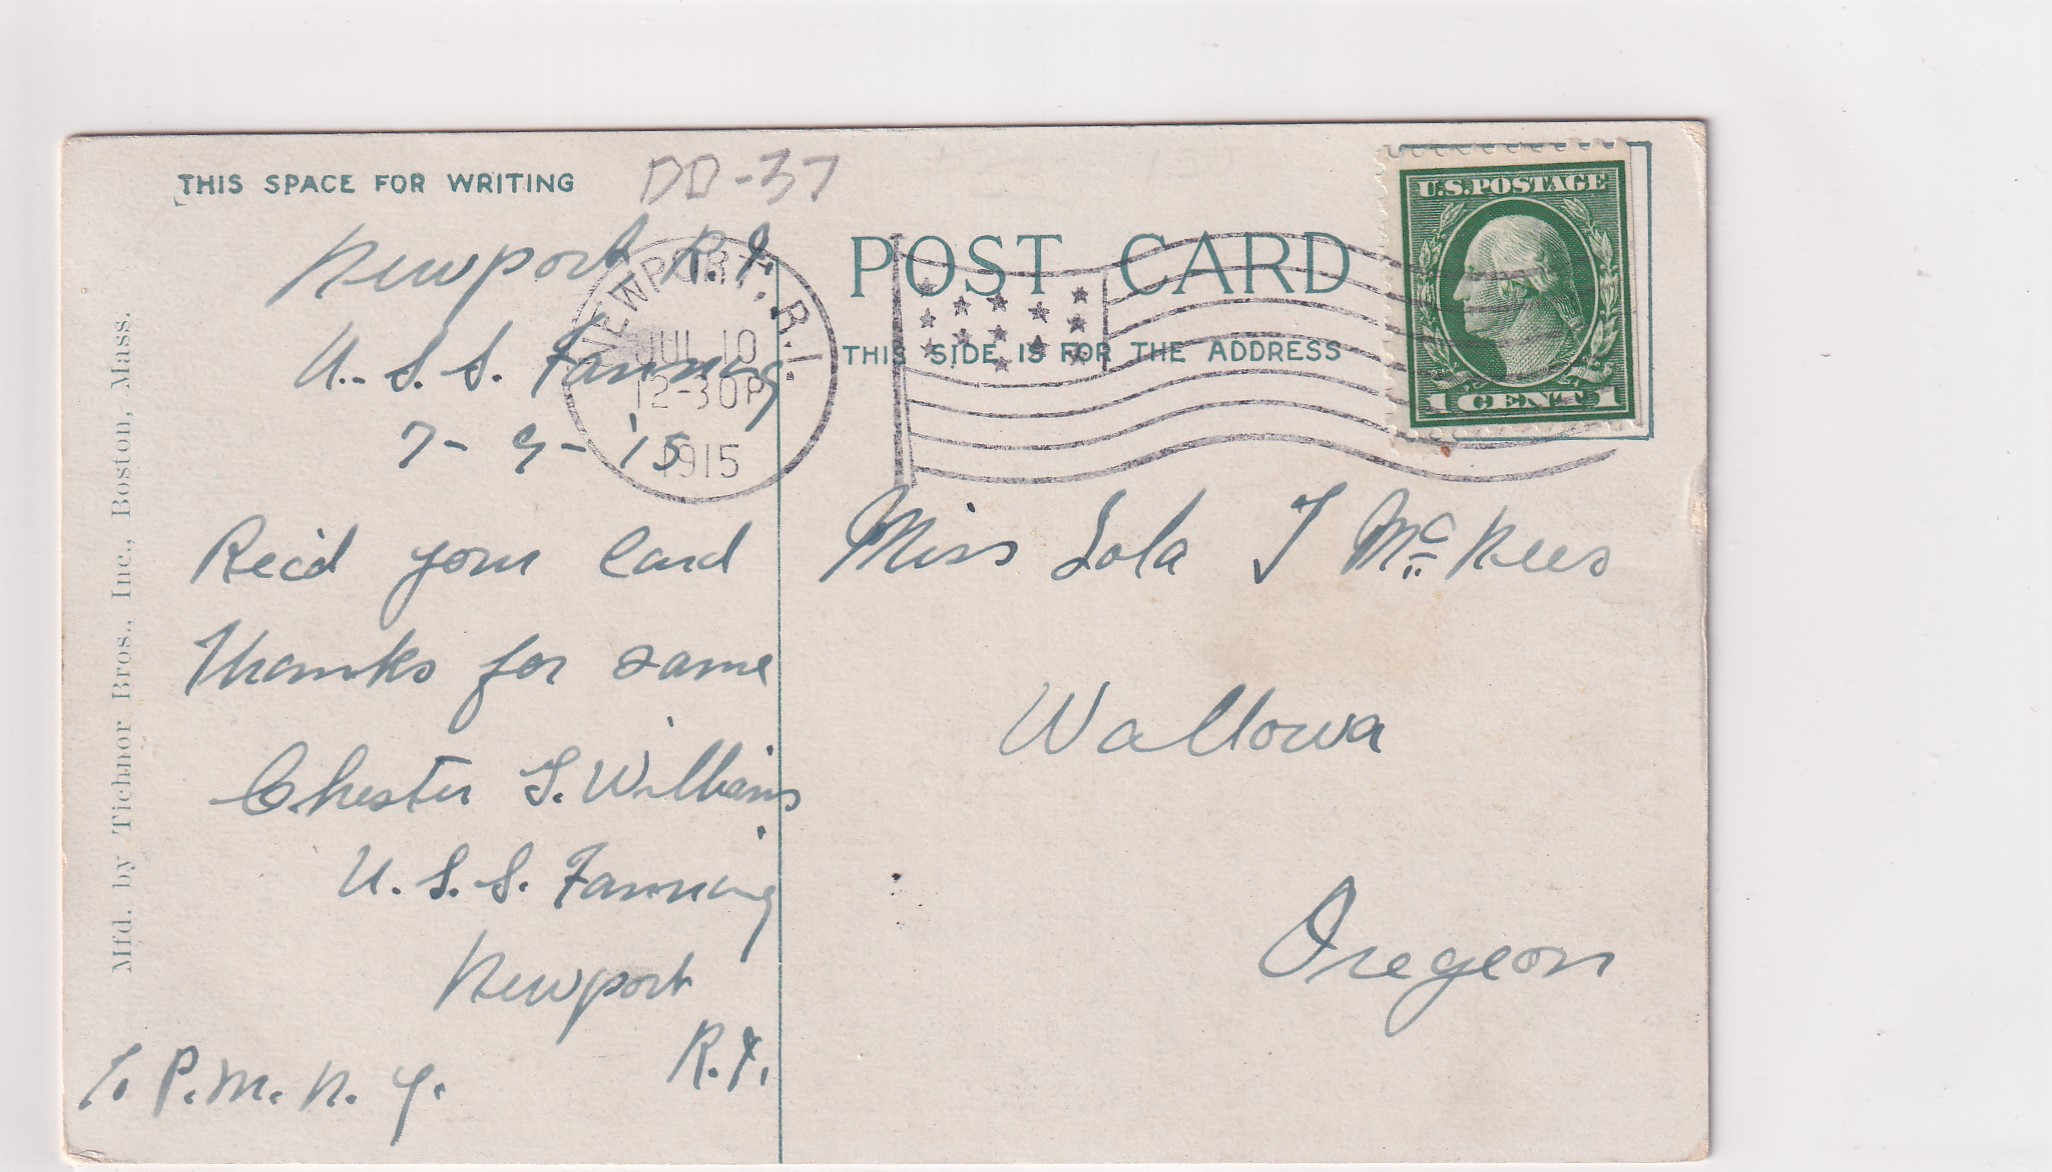 THIS SPACE FOR WRITING
DD-37
Newport R.I.
U.S.S. Fanning
7-9-'15
Rec'd your Card
Thanks for same
Chester G. Williams
U.S.S. Fanning
Newport
R.I.
℅ P.M. N.Y.
Mfd. by Tichnor Bros., Inc., Boston, Mass.
NEWPORT, R.I.
JUL 10
12-30P
1915
POST CARD
THIS SIDE IS FOR THE ADDRESS
U.S.POSTAGE
1 CENT 1
Miss Lola I McNees
Wallowa
Oregeon